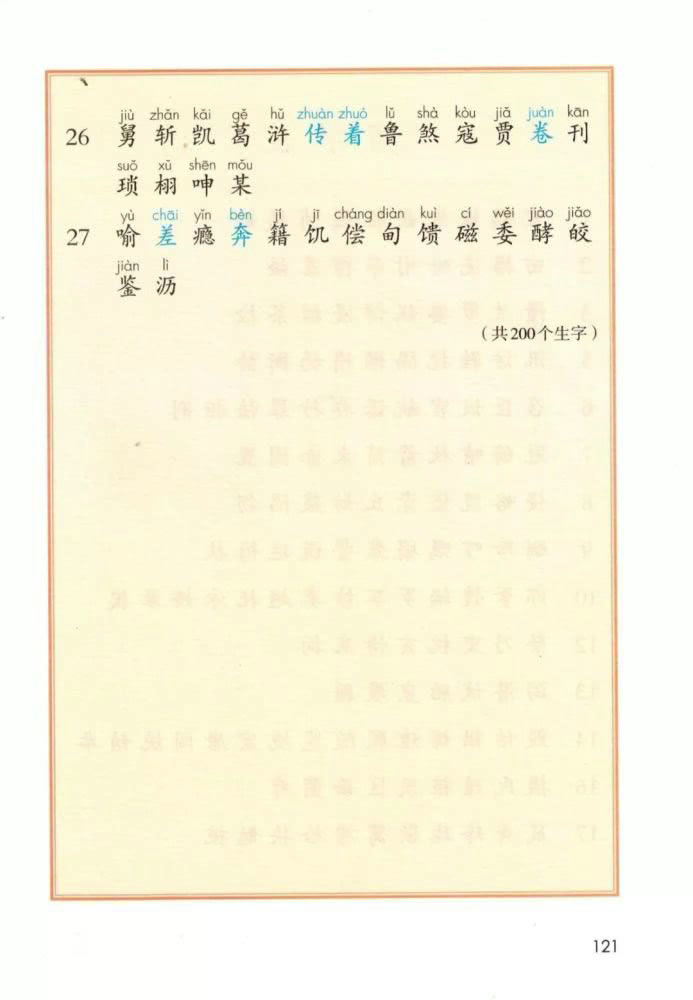 jiù zhǎn kǎi gě hǔ zhuàn zhuó lǔ shà kòu jiǎ juàn kān
26 舅 斩 凯 葛 浒 传 着 鲁 煞 寇 贾 卷 刊
suǒ xǔ shēn mǒu
琐 栩 呻 某
yù chāi yǐn bèn jí jī cháng diàn kuì cí wěi jiào jiǎo
27 喻 差 瘾 奔 籍 饥 偿 甸 馈 磁 委 酵 皎
jiàn lì
鉴 沥
（共200个生字）
121